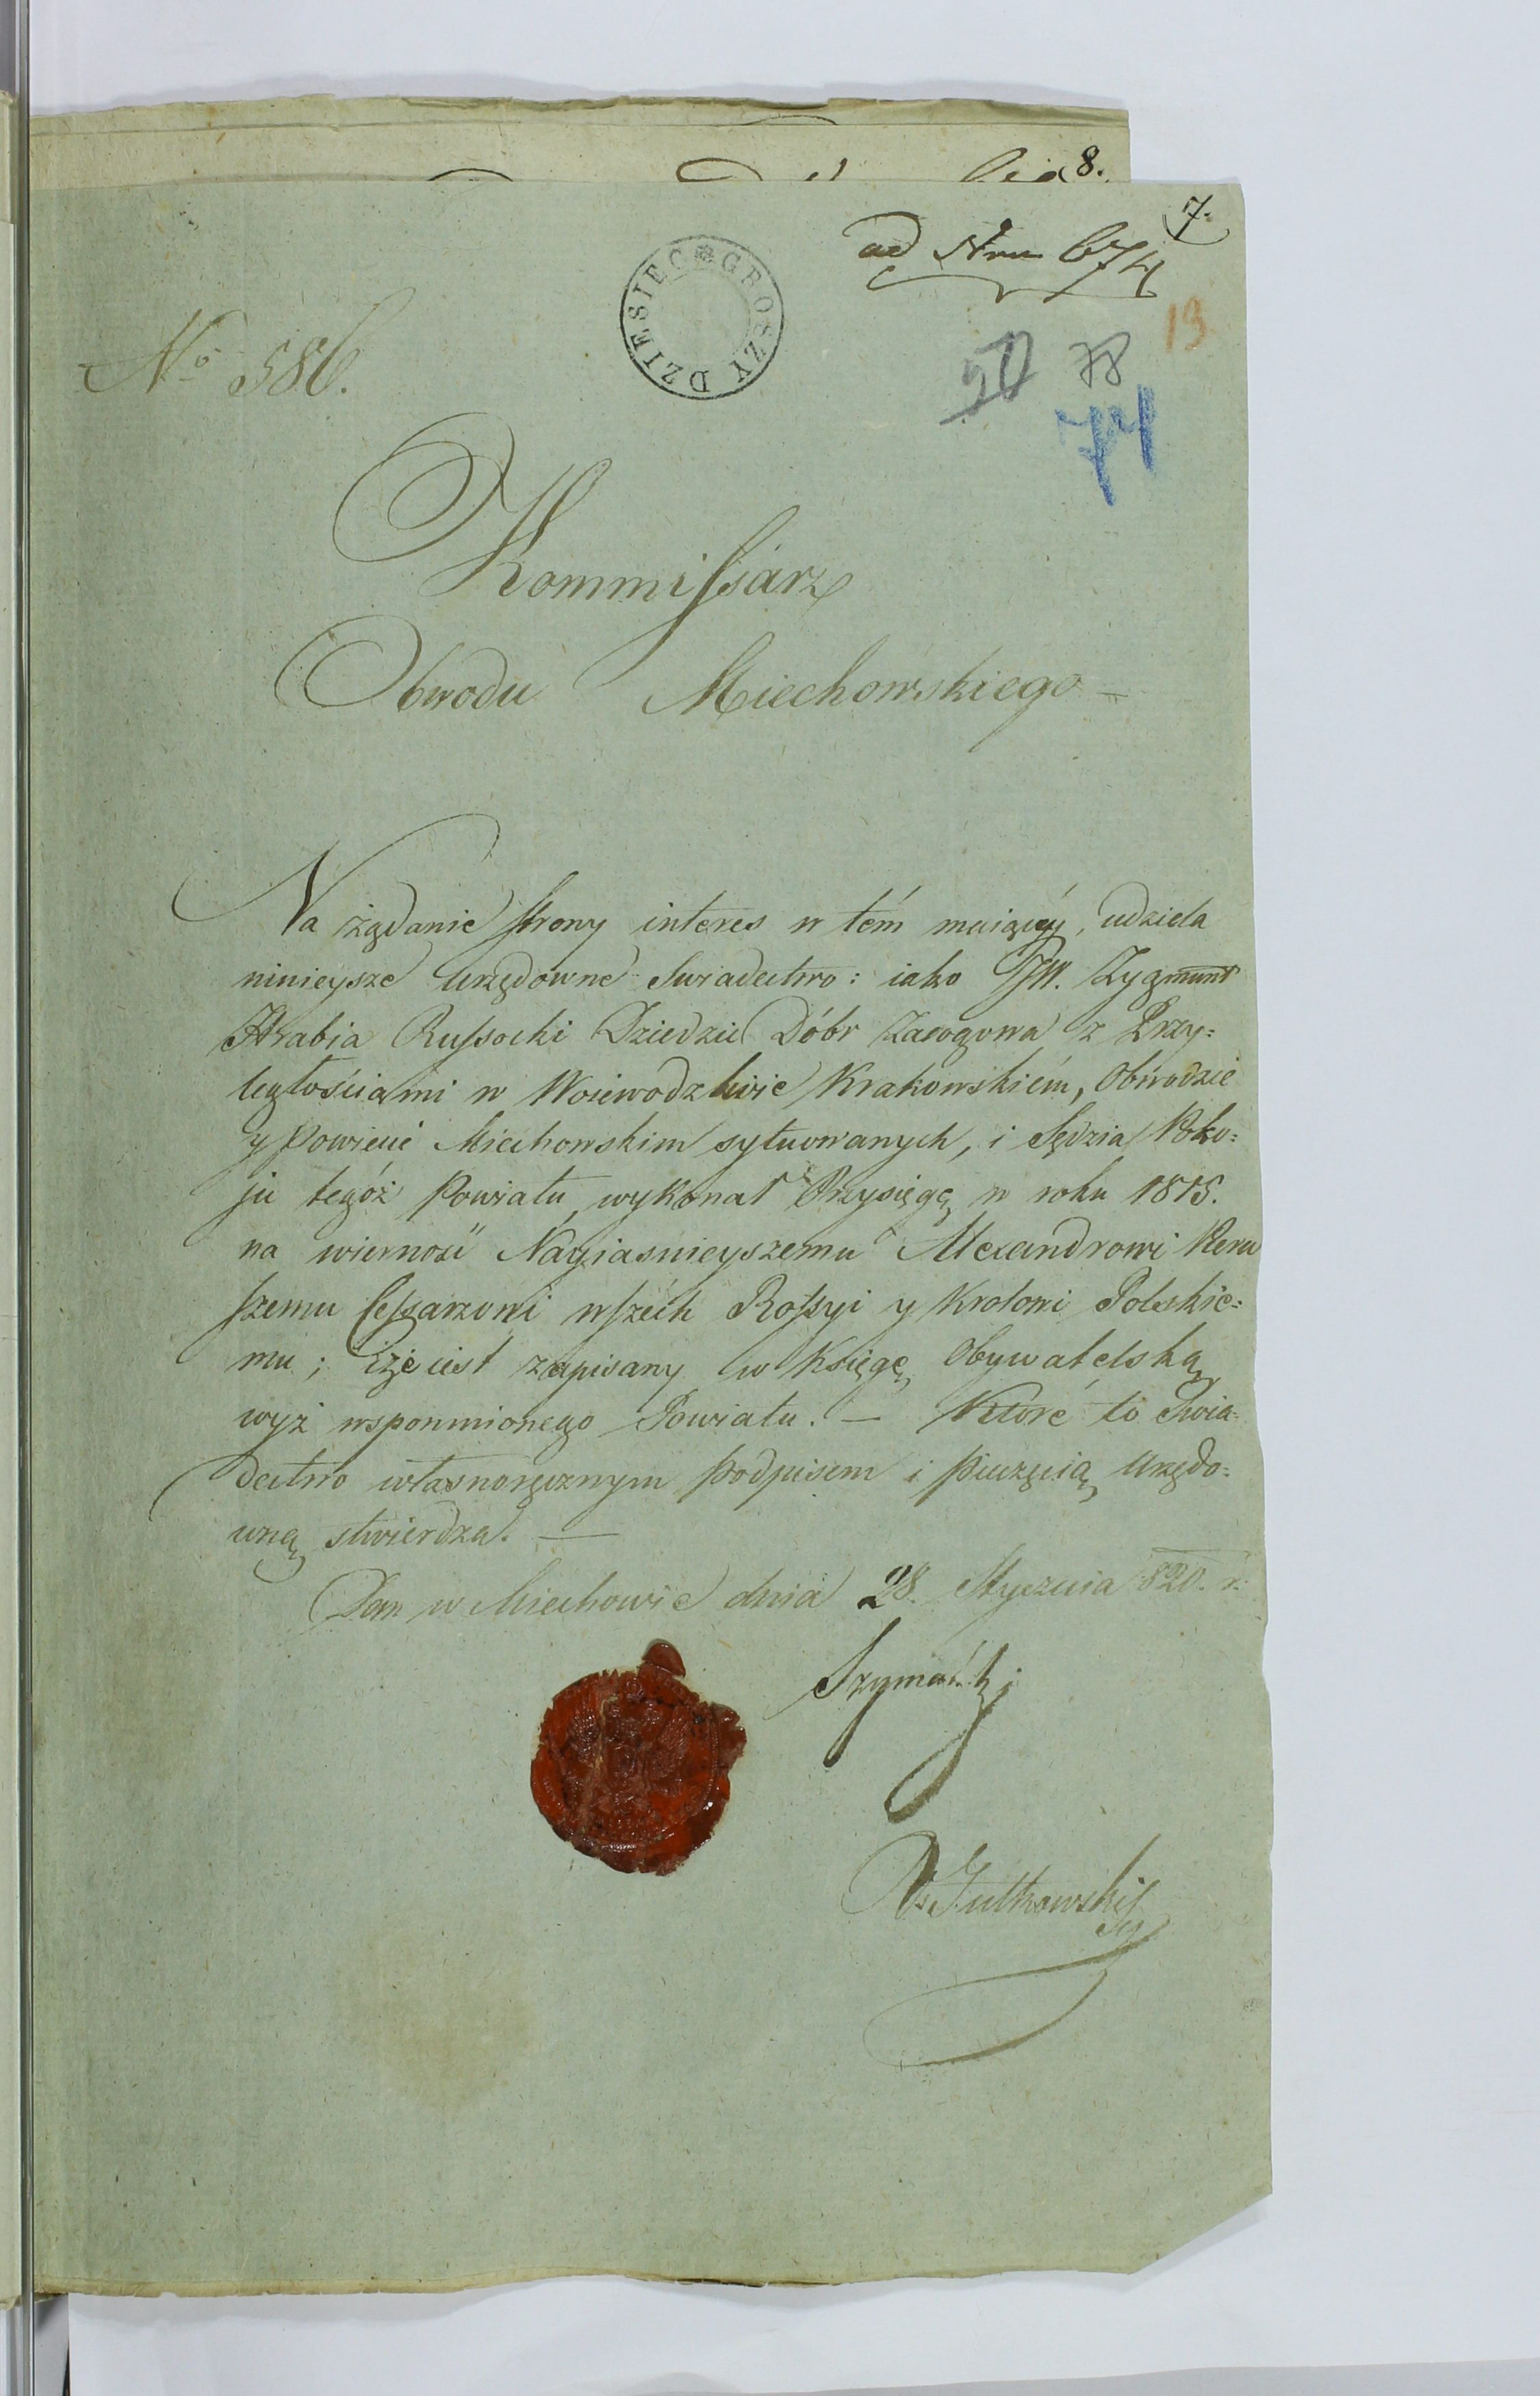 8.
7.
ad Nrm 674
DZIESIEC GROSZY
19
50 78
74
No 586.
Kommissarz
Obwodu Miechowskiego
Na żądanie Strony interes w tém maiącéy, udziela
ninieysze Urzędowne Swiadectwo: iako JW. Zygmunt
Hrabia Russocki Dziedzic Dóbr z Przy=
ległościami w Woiewodztwie Krakowskiém, Obwodzie
y Powiecie Miechowskim sytuowanych, i Sędzia Poko=
ju tegóż Powiatu, wykonał Przysięgę w roku 1815.
na wierność Nayiasnieyszemu Alexandrowi Pierw
szemu Cessarzowi wszech Rossyi y Krolowi Polskie=
mu; iże iest zapisany w Księgę Obywatelską
wyż wspomnionego Powiatu. — Które to Swia=
dectwo własnoręcznym podpisem i pieczęcią Urzędo=
wną stwierdza. —
Dan w Miechowie dnia 28. Stycznia 820. r.
Szymański
Jutkowski